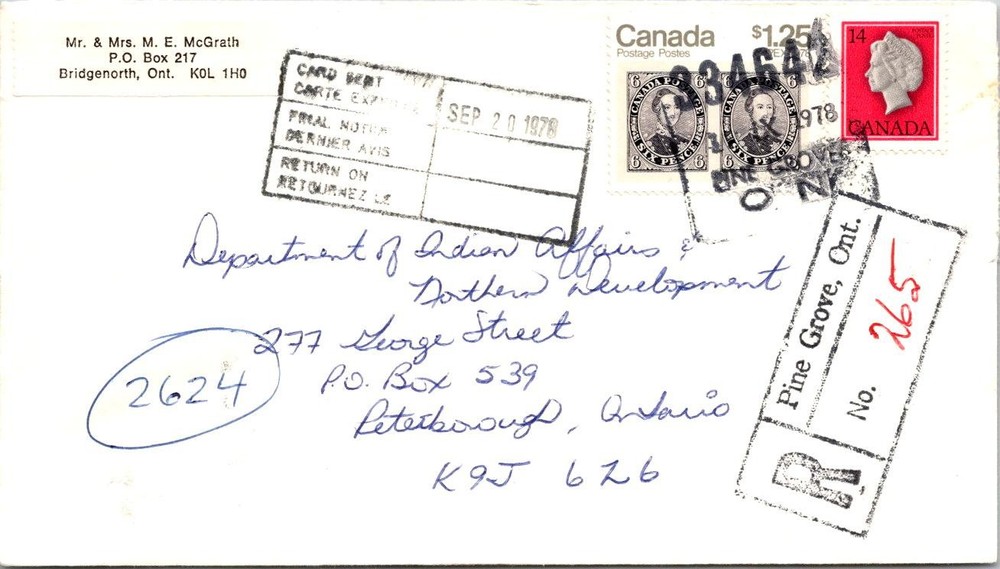 Mr. & Mrs. M. E. McGrath
P.O. Box 217
Bridgenorth, Ont. K0L 1H0
CARD SENT
CARTE
FINAL NOTICE
DERNIER AVIS
RETURN ON
RETOURNEZ LE
SEP 20 1978
Canada $1.25
Postage Postes
6 CANADA POSTAGE 6
6 SIX PENCE 6
6 CANADA POSTAGE 6
6 SIX PENCE 6
334642
IX 1978
PINE GROVE
ONT
14
CANADA
Department of Indian Affairs &
Northern Development
277 George Street
P.O. Box 539
Peterborough, Ontario
K9J 6Z6
2624
R
Pine Grove, Ont.
No. 265